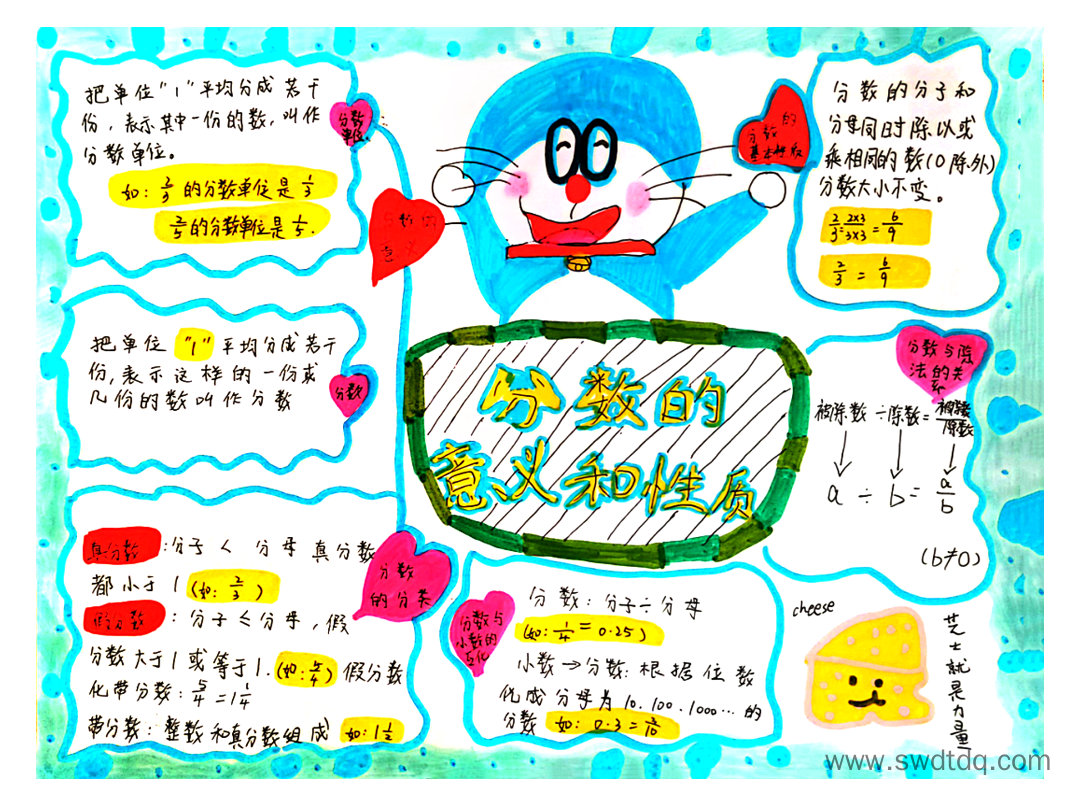 把单位"1"平均分成若干
份，表示其中一份的数，叫作
分数单位。
如：2/3 的分数单位是 1/3
2/5 的分数单位是 1/5.
分数
单位
：
分数的
意义
把单位"1"平均分成若干
份，表示这样的一份或
几份的数叫作分数
分数
真分数：分子 < 分母 真分数
都小于1（如：2/3）
假分数：分子 ≤ 分母，假
分数大于1或等于1.（如：5/4）假分数
化带分数：5/4=1 1/4
带分数：整数和真分数组成 如：1 1/2
分数
的分类
分数的
意义和性质
分数的
基本性质
分数的分子和
分母同时除以或
乘相同的数(0除外)
分数大小不变。
2/3=2×3/3×3=6/9
2/3=6/9
分数与除
法的关
系
被除数÷除数=被除数/除数
a÷b=a/b
(b≠0)
分数与
小数的
互化
分数：分子÷分母
(如：1/4=0.25)
小数→分数：根据位数
化成分母为10.100.1000…的
分数 如：0.3=3/10
cheese
芝士就是力量
www.swdtdq.com